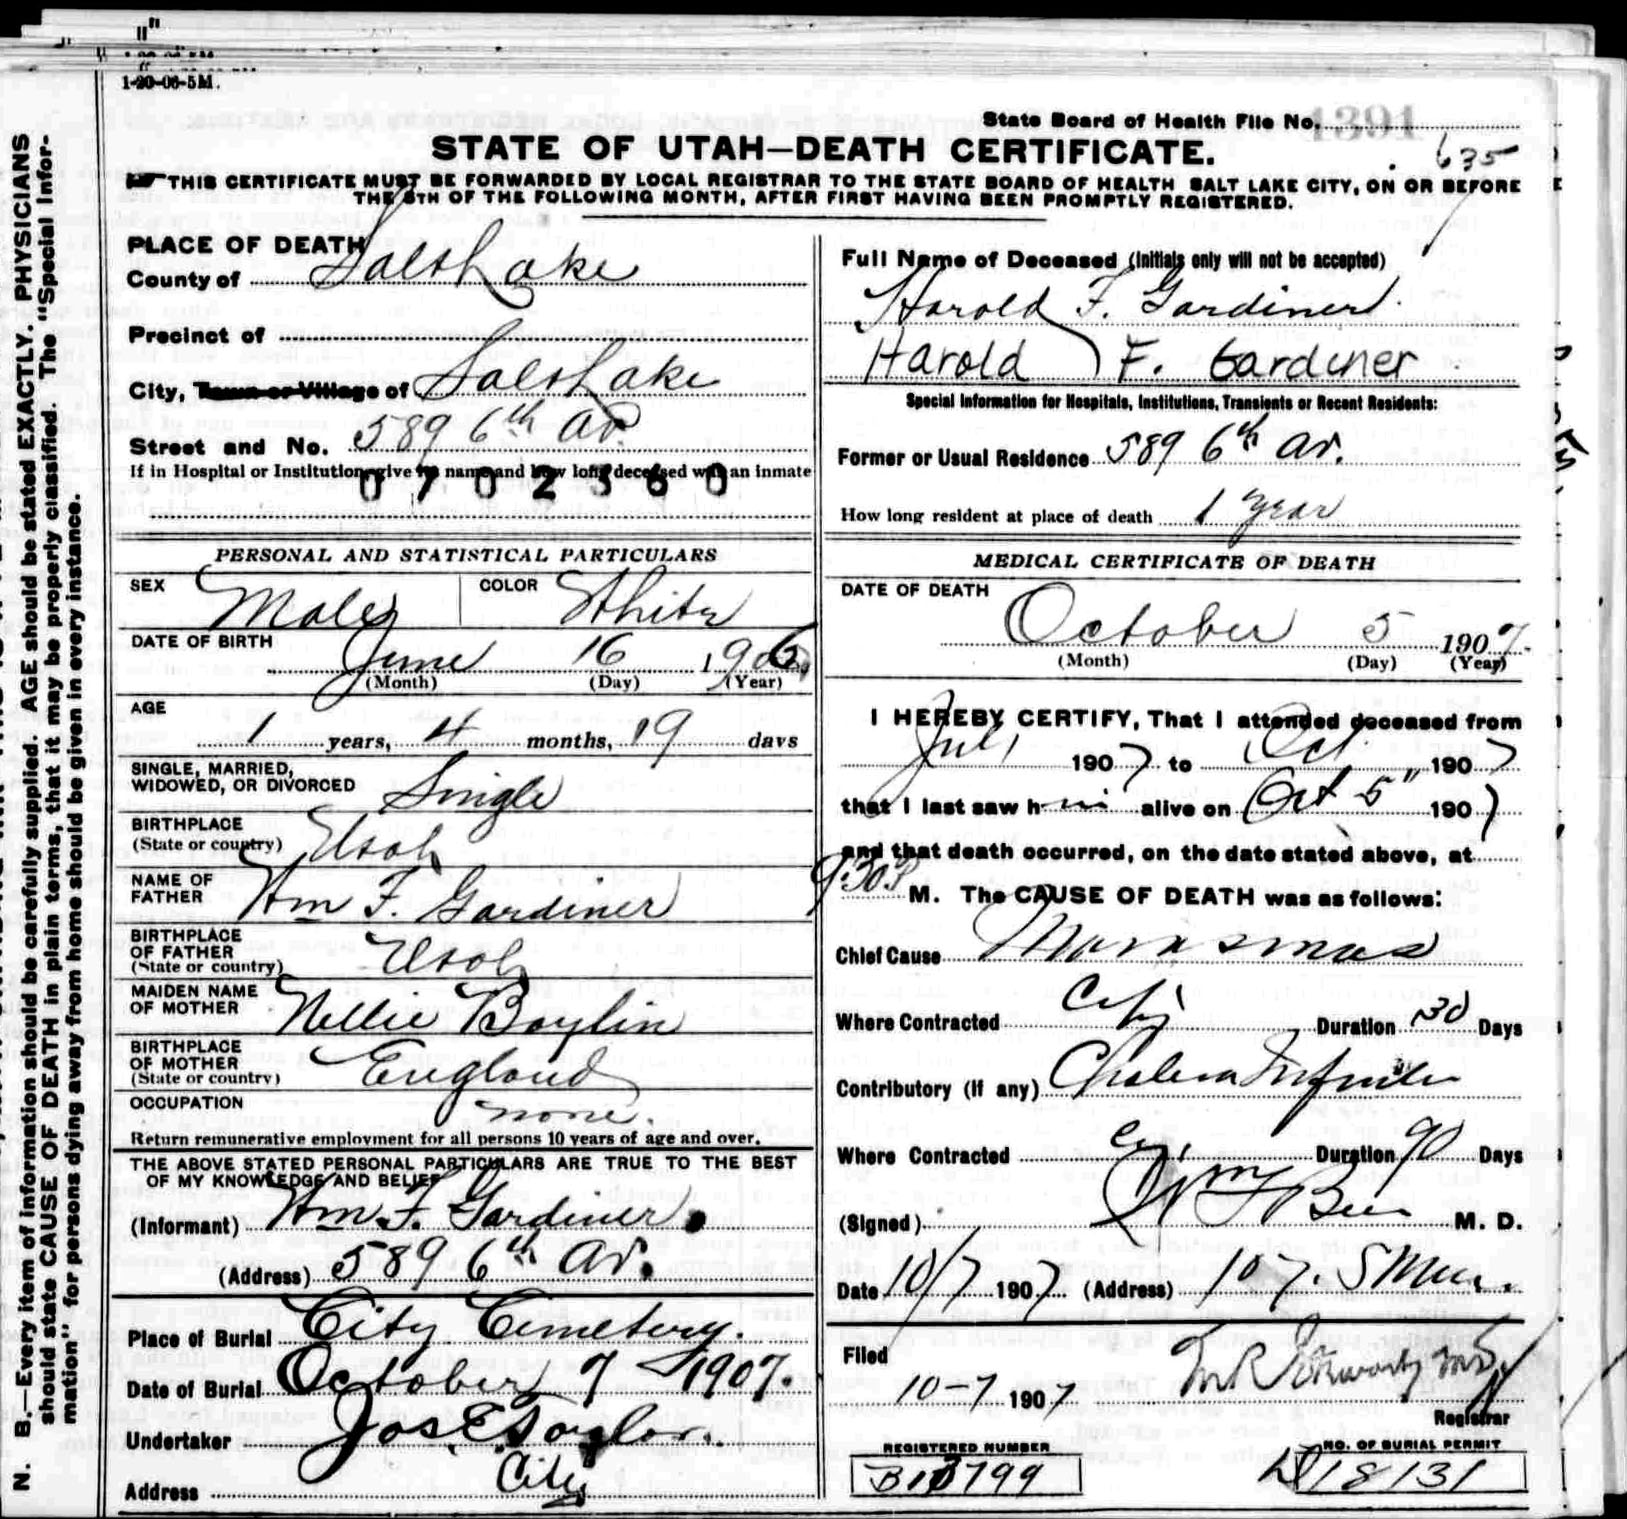 1-20-06-5M.
State Board of Health File No. 1391
635
STATE OF UTAH—DEATH CERTIFICATE.
THIS CERTIFICATE MUST BE FORWARDED BY LOCAL REGISTRAR TO THE STATE BOARD OF HEALTH SALT LAKE CITY, ON OR BEFORE
THE 5TH OF THE FOLLOWING MONTH, AFTER FIRST HAVING BEEN PROMPTLY REGISTERED.
N. B.—Every item of information should be carefully supplied. AGE should be stated EXACTLY. PHYSICIANS
should state CAUSE OF DEATH in plain terms, that it may be properly classified. The "Special Infor-
mation" for persons dying away from home should be given in every instance.
PLACE OF DEATH
County of Salt Lake
Precinct of
City, Town or Village of Salt Lake
Street and No. 589 6th Av.
If in Hospital or Institution, give its name and how long deceased was an inmate
0702360
PERSONAL AND STATISTICAL PARTICULARS
SEX Male COLOR White
DATE OF BIRTH June 16 1906
(Month) (Day) (Year)
AGE
1 years, 4 months, 19 days
SINGLE, MARRIED,
WIDOWED, OR DIVORCED Single
BIRTHPLACE
(State or country) Utah
NAME OF
FATHER Wm F. Gardiner
BIRTHPLACE
OF FATHER
(State or country) Utah
MAIDEN NAME
OF MOTHER Nellie Baylin
BIRTHPLACE
OF MOTHER
(State or country) England
OCCUPATION none.
Return remunerative employment for all persons 10 years of age and over.
THE ABOVE STATED PERSONAL PARTICULARS ARE TRUE TO THE BEST
OF MY KNOWLEDGE AND BELIEF
(Informant) Wm. F. Gardiner.
(Address) 589 6th Av.
Place of Burial City Cemetery.
Date of Burial October 7 1907.
Undertaker Jos E Taylor.
Address City
Full Name of Deceased (Initials only will not be accepted)
Harold F. Gardiner
Harold F. Gardiner
Special Information for Hospitals, Institutions, Transients or Recent Residents:
Former or Usual Residence 589 6th Av.
How long resident at place of death 1 year
MEDICAL CERTIFICATE OF DEATH
DATE OF DEATH
October 5 1907.
(Month) (Day) (Year)
I HEREBY CERTIFY, That I attended deceased from
July 1907 to Oct. 1907
that I last saw him alive on Oct 5" 1907
and that death occurred, on the date stated above, at
9:30 P M. The CAUSE OF DEATH was as follows:
Chief Cause Marasmus
Where Contracted City Duration 30 Days
Contributory (if any) Cholera Infantum
Where Contracted City Duration 90 Days
(Signed) M. D.
Date 10/7 1907 (Address) 107. S Main.
Filed
10-7 1907
Registrar
REGISTERED NUMBER
NO. OF BURIAL PERMIT
18131